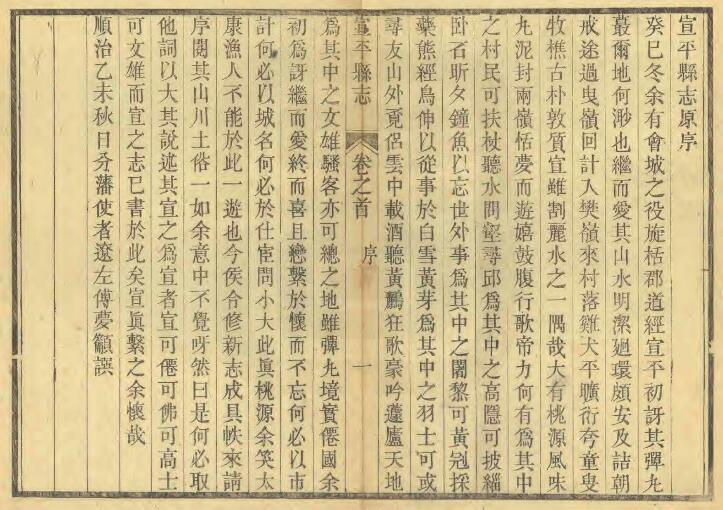 宣平縣志原序
癸巳冬余有會城之役旋栝郡道經宣平初訝其彈丸
蕞爾地何渺也繼而愛其山水明潔迴環頗安及詰朝
戒途過曳嶺回計入樊嶺來村落雞犬平曠衍夸童叟
牧樵古朴敦質宣雖割麗水之一隅哉大有桃源風味
九泥封兩嶺恬夢而遊嬉鼓腹行歌帝力何有爲其中
之村民可扶杖聽水問壑尋邱爲其中之高隱可披緇
卧石斨夊鐘魚以忘世外事爲其中之闍黎可黃冠採
藥熊經鳥伸以從事於白雪黃芽爲其中之羽士可或
尋友山外覓侶雲中載酒聽黃鸝狂歌豪吟蘧廬天地
宣平縣志
卷之首
序
一
爲其中之文雄騷客亦可總之地雖彈丸境實僊國余
初爲訝繼而愛終而喜且戀繫於懷而不忘何必以市
計何必以城名何必於仕宦問小大此眞桃源余笑太
康漁人不能於此一遊也今侯合修新志成具帙來請
序閱其山川土俗一如余意中不覺呀然曰是何必取
他詞以大其說述其宣之爲宣者宣可僊可佛可高士
可文雄而宣之志已書於此矣宣眞繫之余懷哉
順治乙未秋日分藩使者遼左傅夢籲譔